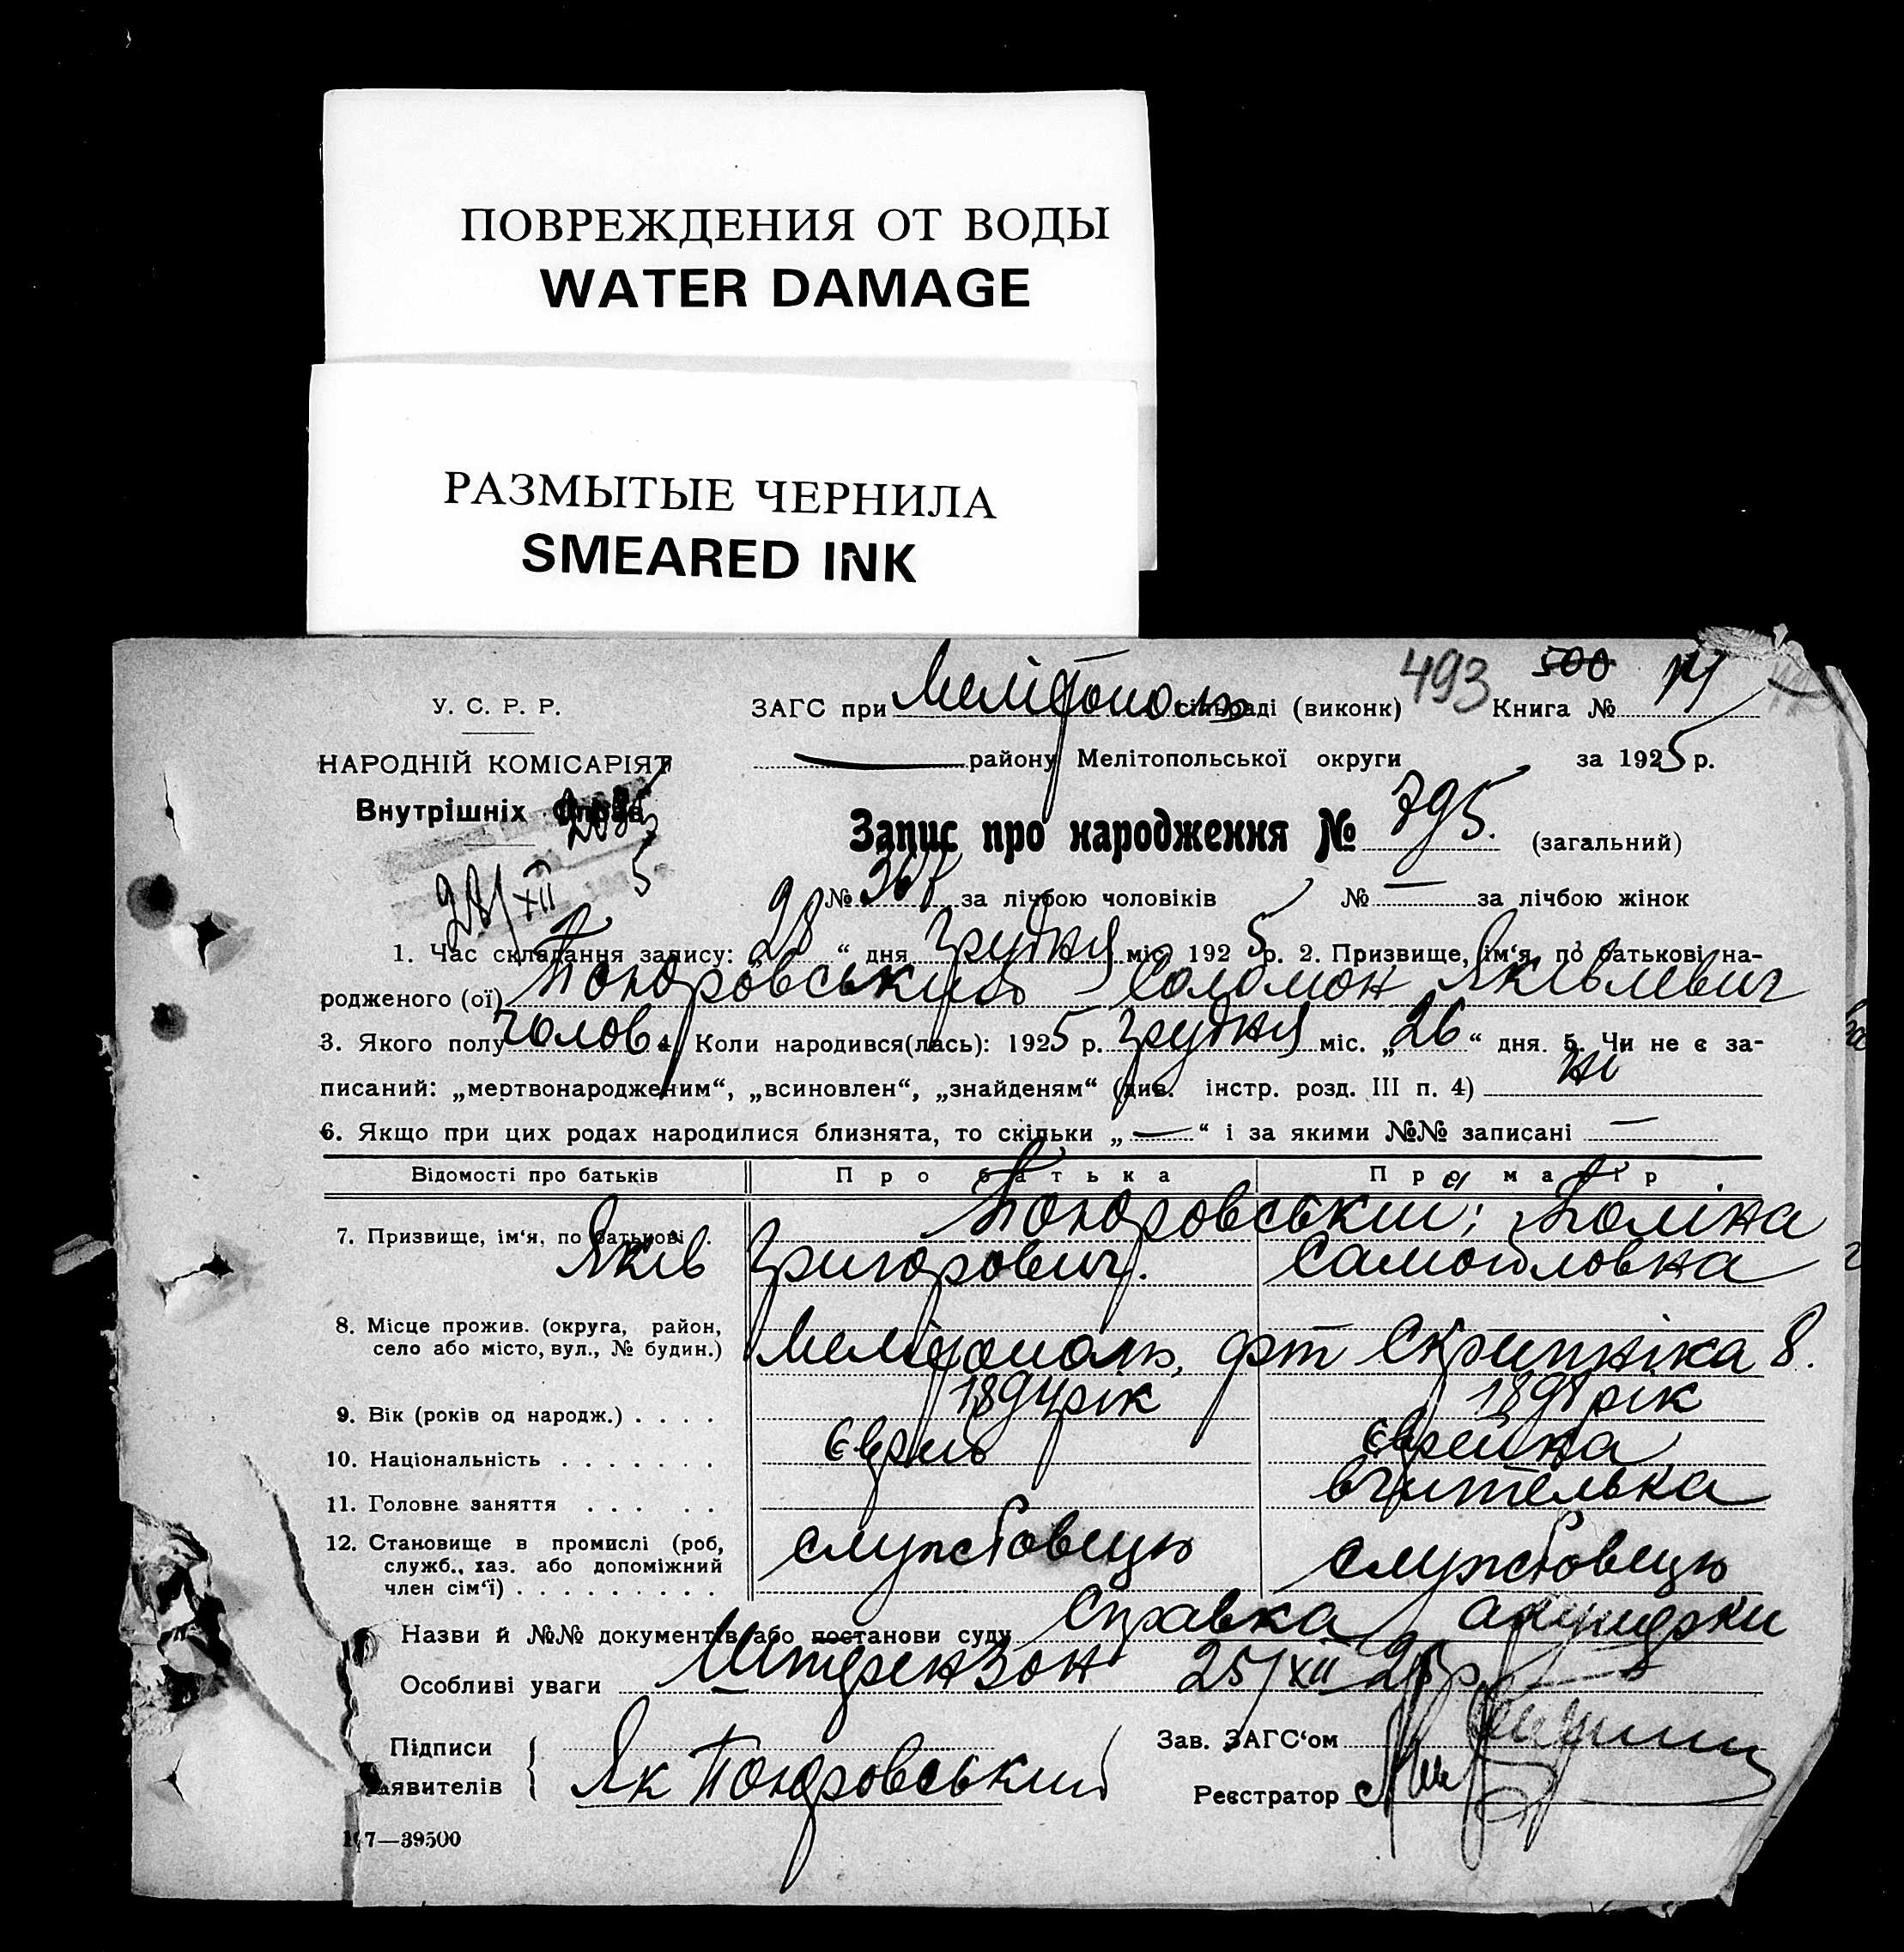 ПОВРЕЖДЕНИЯ ОТ ВОДЫ
WATER DAMAGE
РАЗМЫТЫЕ ЧЕРНИЛА
SMEARED INK
493 500
У. С. Р. Р.
ЗАГС при Мелітополь сільраді (виконк) Книга №
НАРОДНІЙ КОМІСАРІЯТ
району Мелітопольської округи за 1925 р.
Внутрішніх Справ
Запис про народження № 795. (загальний)
28/XII 5
№ за лічбою чоловіків № — за лічбою жінок
1. Час складання запису: „28“ дня грудня міс. 1925 р. 2. Призвище, ім‘я, по батькові на-
родженого (ої) Соломон Яківлевич
3. Якого полу чолов 4. Коли народився(лась): 1925 р. грудня міс. „26“ дня. 5. Чи не є за-
писаний: „мертвонародженим“, „всиновлен“, „знайденям“ (див. інстр. розд. III п. 4) ні
6. Якщо при цих родах народилися близнята, то скільки „—“ і за якими №№ записані —
Відомості про батьків Про батька Про матір
7. Призвище, ім‘я, по батькові . Поліна
Яків Григорович. Самойловна
8. Місце прожив. (округа, район,
село або місто, вул., № будин.) Мелітополь, Скрипніка 8.
9. Вік (років од народж.) . . . . рік рік
10. Національність . . . . . . . Єврей Єврейка
11. Головне заняття . . . . . вчителька
12. Становище в промислі (роб,
служб., хаз. або допоміжний
член сім‘ї) . . . . . . . . . службовець службовець
Назви й №№ документів або постанови суду Справка акушерки
Особливі уваги 25/XII 25 р.
Підписи
Зав. ЗАГС‘ом
аявителів Як
Реєстратор
7—39500